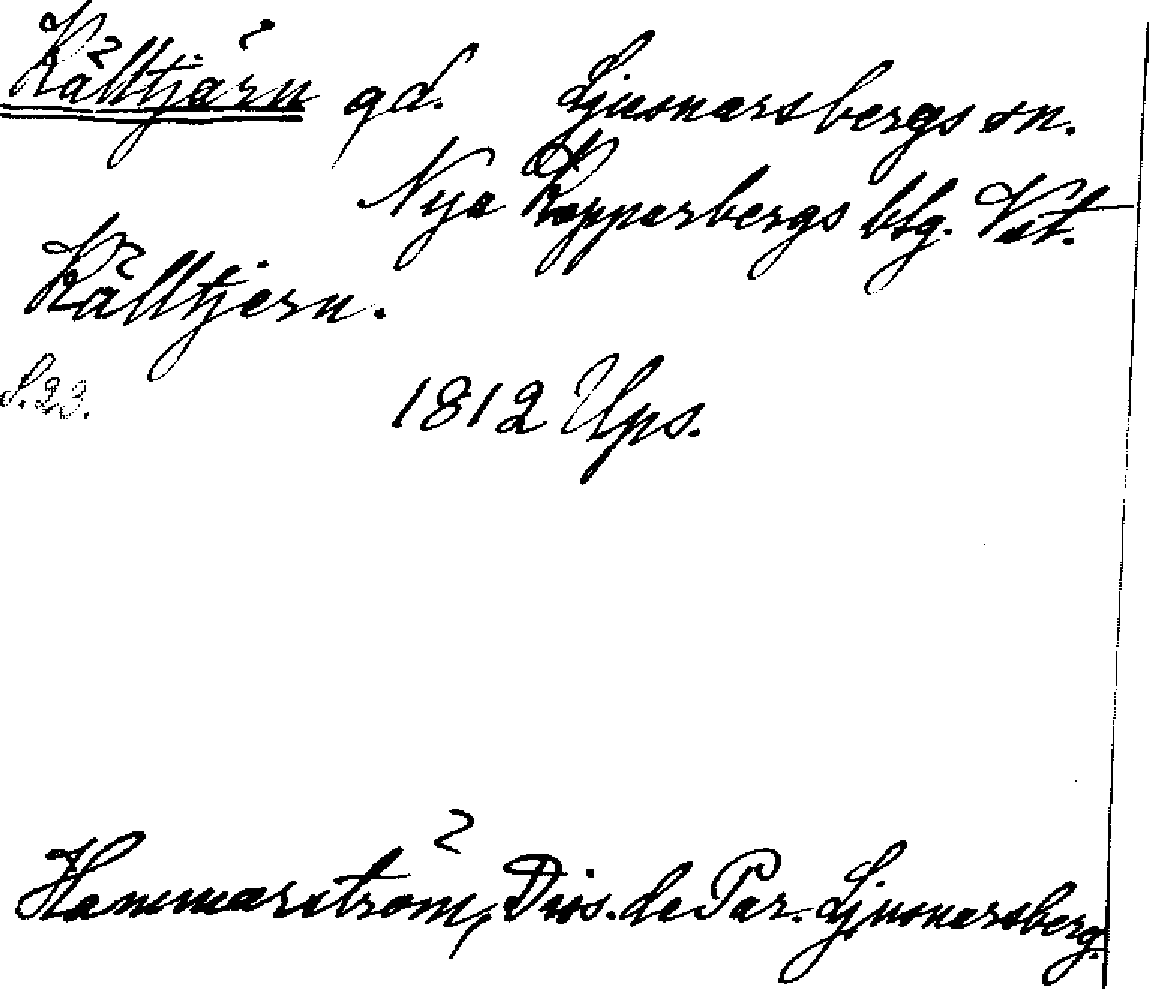 Källtjärn gd. Ljusnarsbergs sn.
Nya Kopparbergs bslg. Vst.
Källtjern.
S. 23. 1812 Ups.
Hammarström, Diss. de Par. Ljusnarsberg.